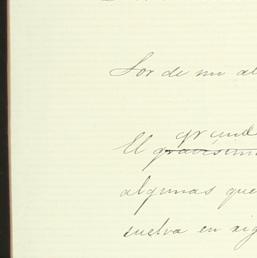 Sor de mi al
grand
El gravisimo
algunas que
suelva en rig